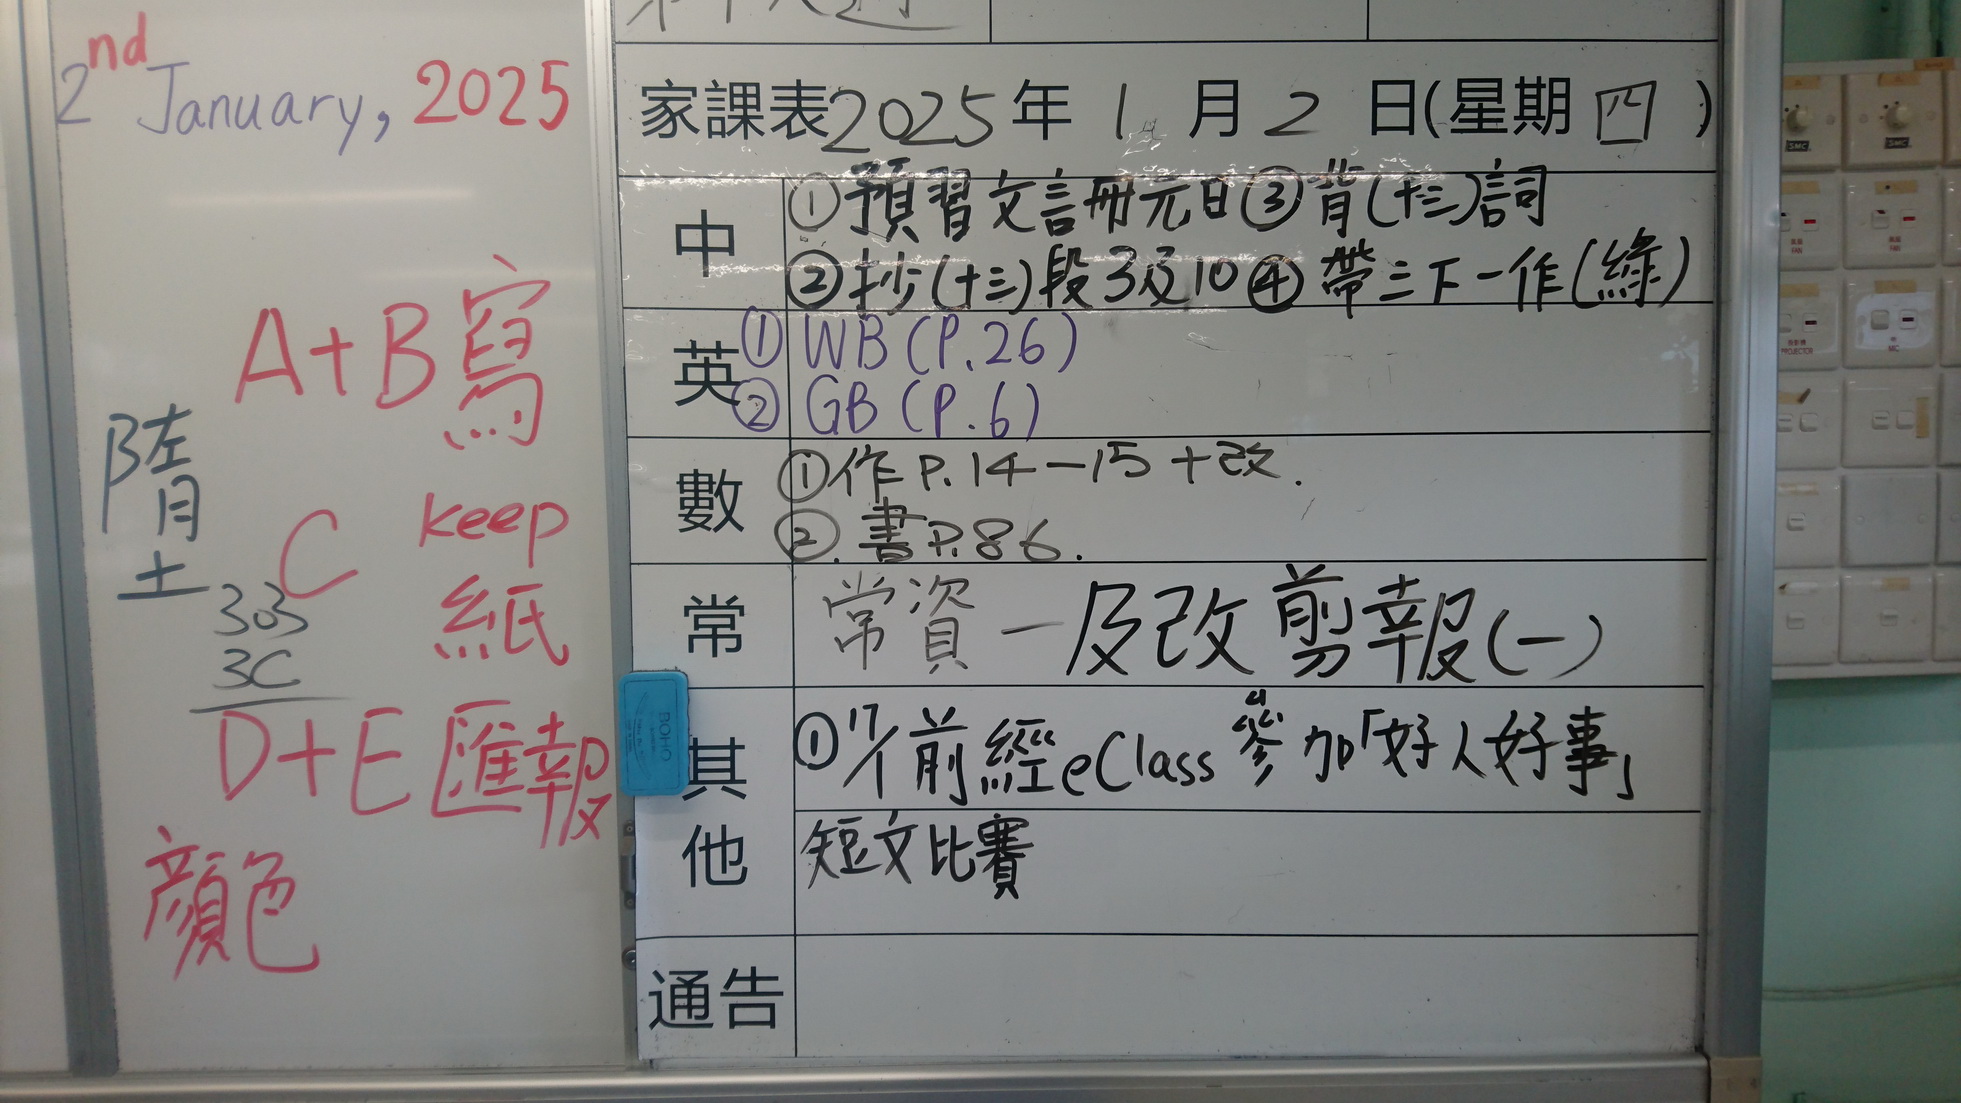 2nd January, 2025
A+B 寫
陸
C keep 紙
303
3C
D+E 匯報
顏色
家課表 2025 年 1 月 2 日(星期 四 )
中
①預習文言冊元日 ③背(十三)詞
②抄(十三)段3及10 ④帶三下一作(綠)
英
① WB (P.26)
② GB (P.6)
數
①作P.14-15+改.
②.書P.86.
常
常資一及改剪報(一)
其他
①17/1前經eClass參加「好人好事」
短文比賽
通告
BOHO
SMC
SMC
FAN
FAN
PROJECTOR
MIC